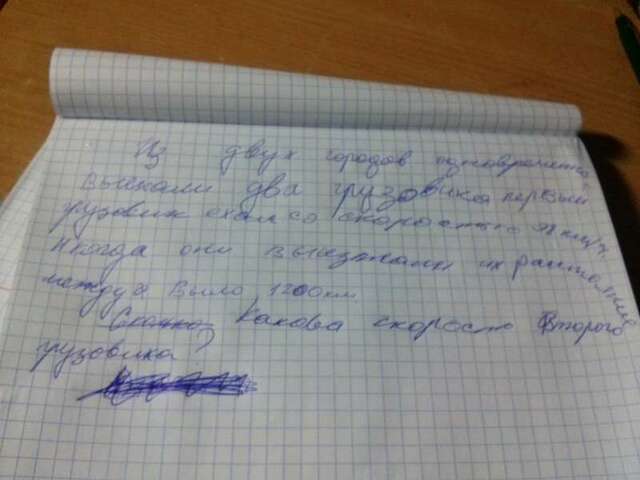 Из двух городов одновременно
выехали два грузовика первый
грузовик ехал со скоростью км/ч.
Когда они выезжали их расстояние
между было 1200км
Какова скорость Второго
грузовика?